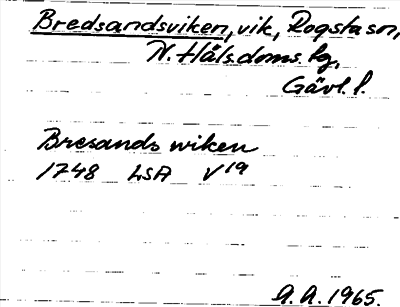 Bredsandsviken, vik, Rogsta sn,
N. Hälsdoms. fg,
Gävl. l.
Bresands wiken
1748 LSA V19
A.A. 1965.